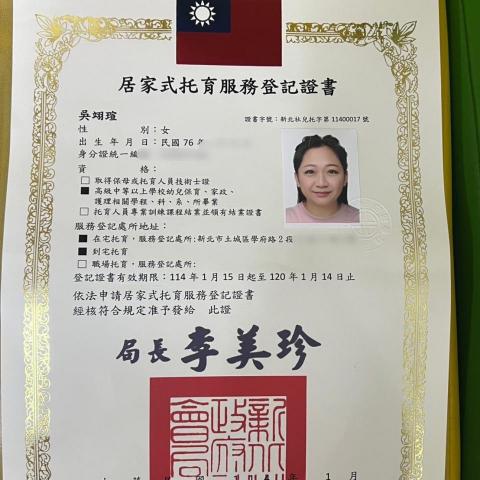 居家式托育服務登記證書
吳翊瑄
證書字號：新北社兒托字第11400017號
性 別：女
出生年月日：民國76
身分證統一編
資 格：
□ 取得保母或托育人員技術士證
■ 高級中等以上學校幼兒保育、家政、
護理相關學程、科、系、所畢業
□ 托育人員專業訓練課程結業並領有結業證書
服務登記處所地址：
■ 在宅托育，服務登記處所：新北市土城區學府路2段
■ 到宅托育
□ 職場托育，服務登記處所：
登記證書有效期限：114年1月15日起至120年1月14日止
依法申請居家式托育服務登記證書
經核符合規定准予發給 此證
局長 李美珍